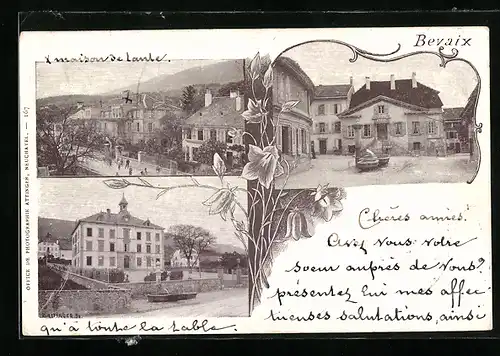 x maison de tante.
Bevaix
OFFICE DE PHOTOGRAPHIE ATTINGER, NEUCHATEL. — 167
Chères amies!
Avez vous votre
soeur auprès de vous?
présentez lui mes affec
tueuses salutations, ainsi
qu'à toute la table